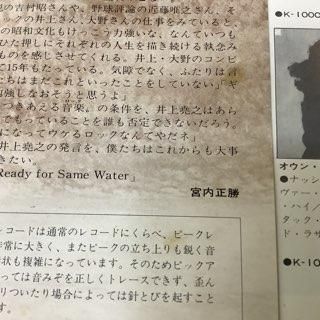 の吉村昭さんや、野球評論の近藤唯之さん、そ
ックの井上さん、大野さんの仕事をみていると、
の昭和文化もけっこう力強いな、なんていつも
ひた押しにそれぞれの人生を描き続ける執念み
ものを感じさせてくれる。井上・大野のコンビ
て15年もたっている。気障でなく、ふたりは言
たちはまだこれといったことをしていない」「ギ
勉強しなおそうと思うよ」
つきあえる音楽。の条件を、井上堯之はあま
てもっていることを誰も否定できないだろう。
になってウケるロックなんてやだネ」
井上堯之の発言を、僕たちはこれからも大事
きたい。
Ready for Same Water」
宮内正勝
レコードは通常のレコードにくらべ、ピークレ
非常に大きく、またピークの立ち上りも鋭く音
状も複雑になっています。そのためピックア
っては音みぞを正しくトレースできず、歪ん
りついたり場合によっては針とびを起すこと
す。
●K-100
オウン・
●ナッシ
ヴァー・
・ハイ／
タック・
ド・ラサ
●K-10